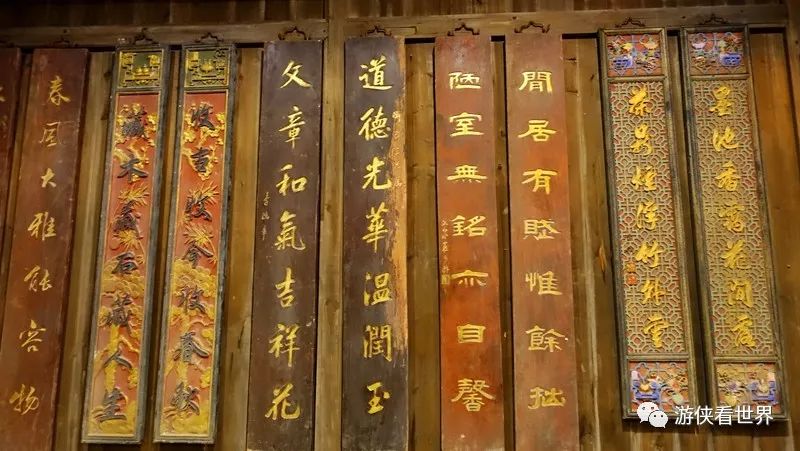 墨池香靄花間露
茶鼎烟浮竹外雲
閒居有惟餘拙
陋室無銘亦自馨
道德光華温潤玉
文章和氣吉祥花
收收今收春秋
藏木藏石藏人生
春風大雅能容物
游侠看世界